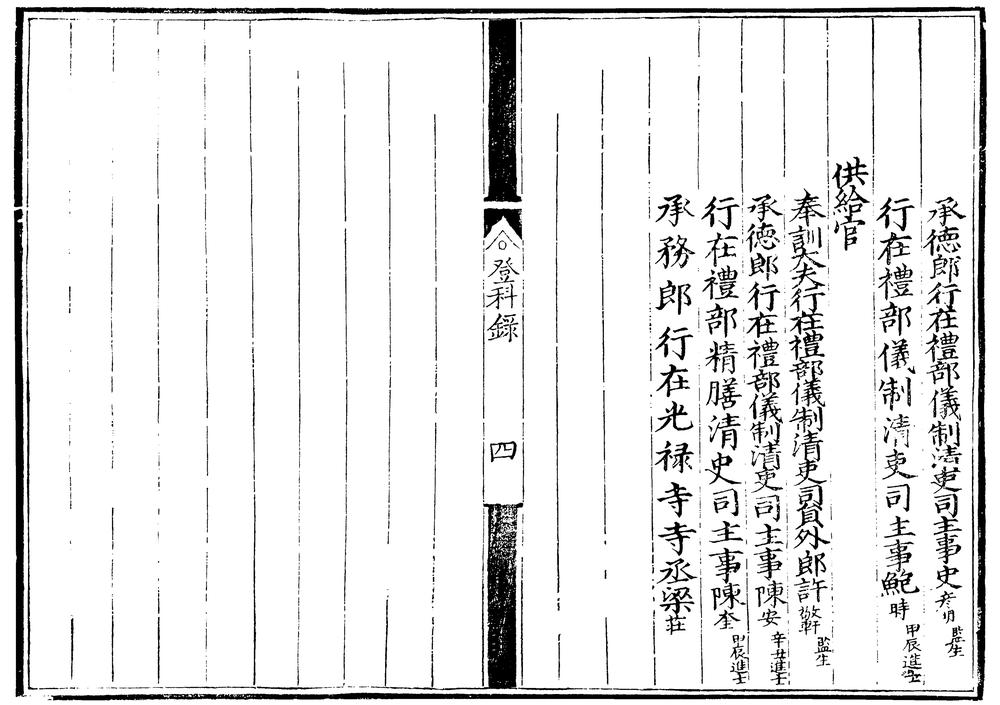 承德郎行在禮部儀制清吏司主事史 監生
行在禮部儀制清吏司主事鮑時 甲辰進士
供給官
奉訓大夫行在禮部儀制清吏司員外郎許敬軒 監生
承德郎行在禮部儀制清吏司主事陳安 辛丑進士
行在禮部精膳清史司主事陳奎 甲辰進士
承務郎行在光禄寺寺丞梁荘
登科録 四